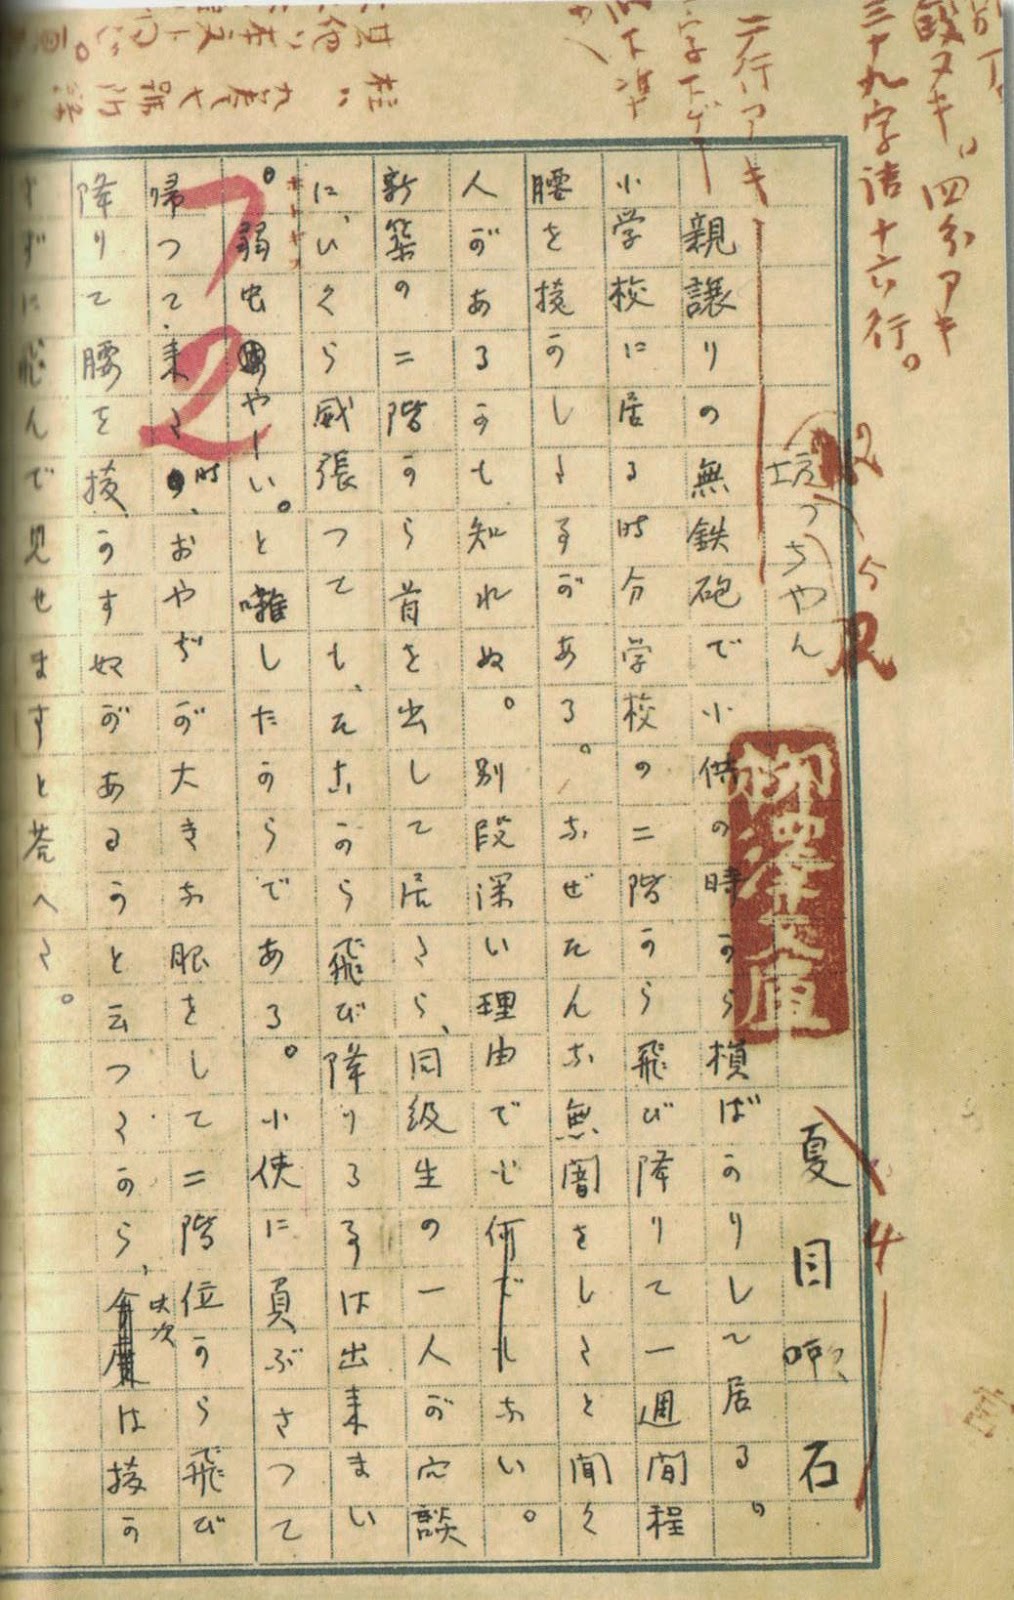 段ヌキ、四分アキ
三十九字詰十六行。
二行アキ
字下ゲ
以下準
2
5
4
坊っちやん 夏目漱石
親譲りの無鉄砲で小供の時から損ばかりして居る。
小学校に居る時分学校の二階から飛び降りて一週間程
腰を抜かした事がある。なぜそんな無闇をしたと聞く
人があるかも知れぬ。別段深い理由でも何でもない。
新築の二階から首を出して居たら、同級生の一人が冗談
に、いくら威張つても、そこから飛び降りる事は出来まい
。弱虫やーい。と囃したからである。小使に負ぶさつて
帰つて来た時、おやぢが大きな眼をして二階位から飛び
降りて腰を抜かす奴があるかと云つたから、此次は抜か
さずに飛んで見せますと答へた。
ホトトギス
72
柳澤文庫